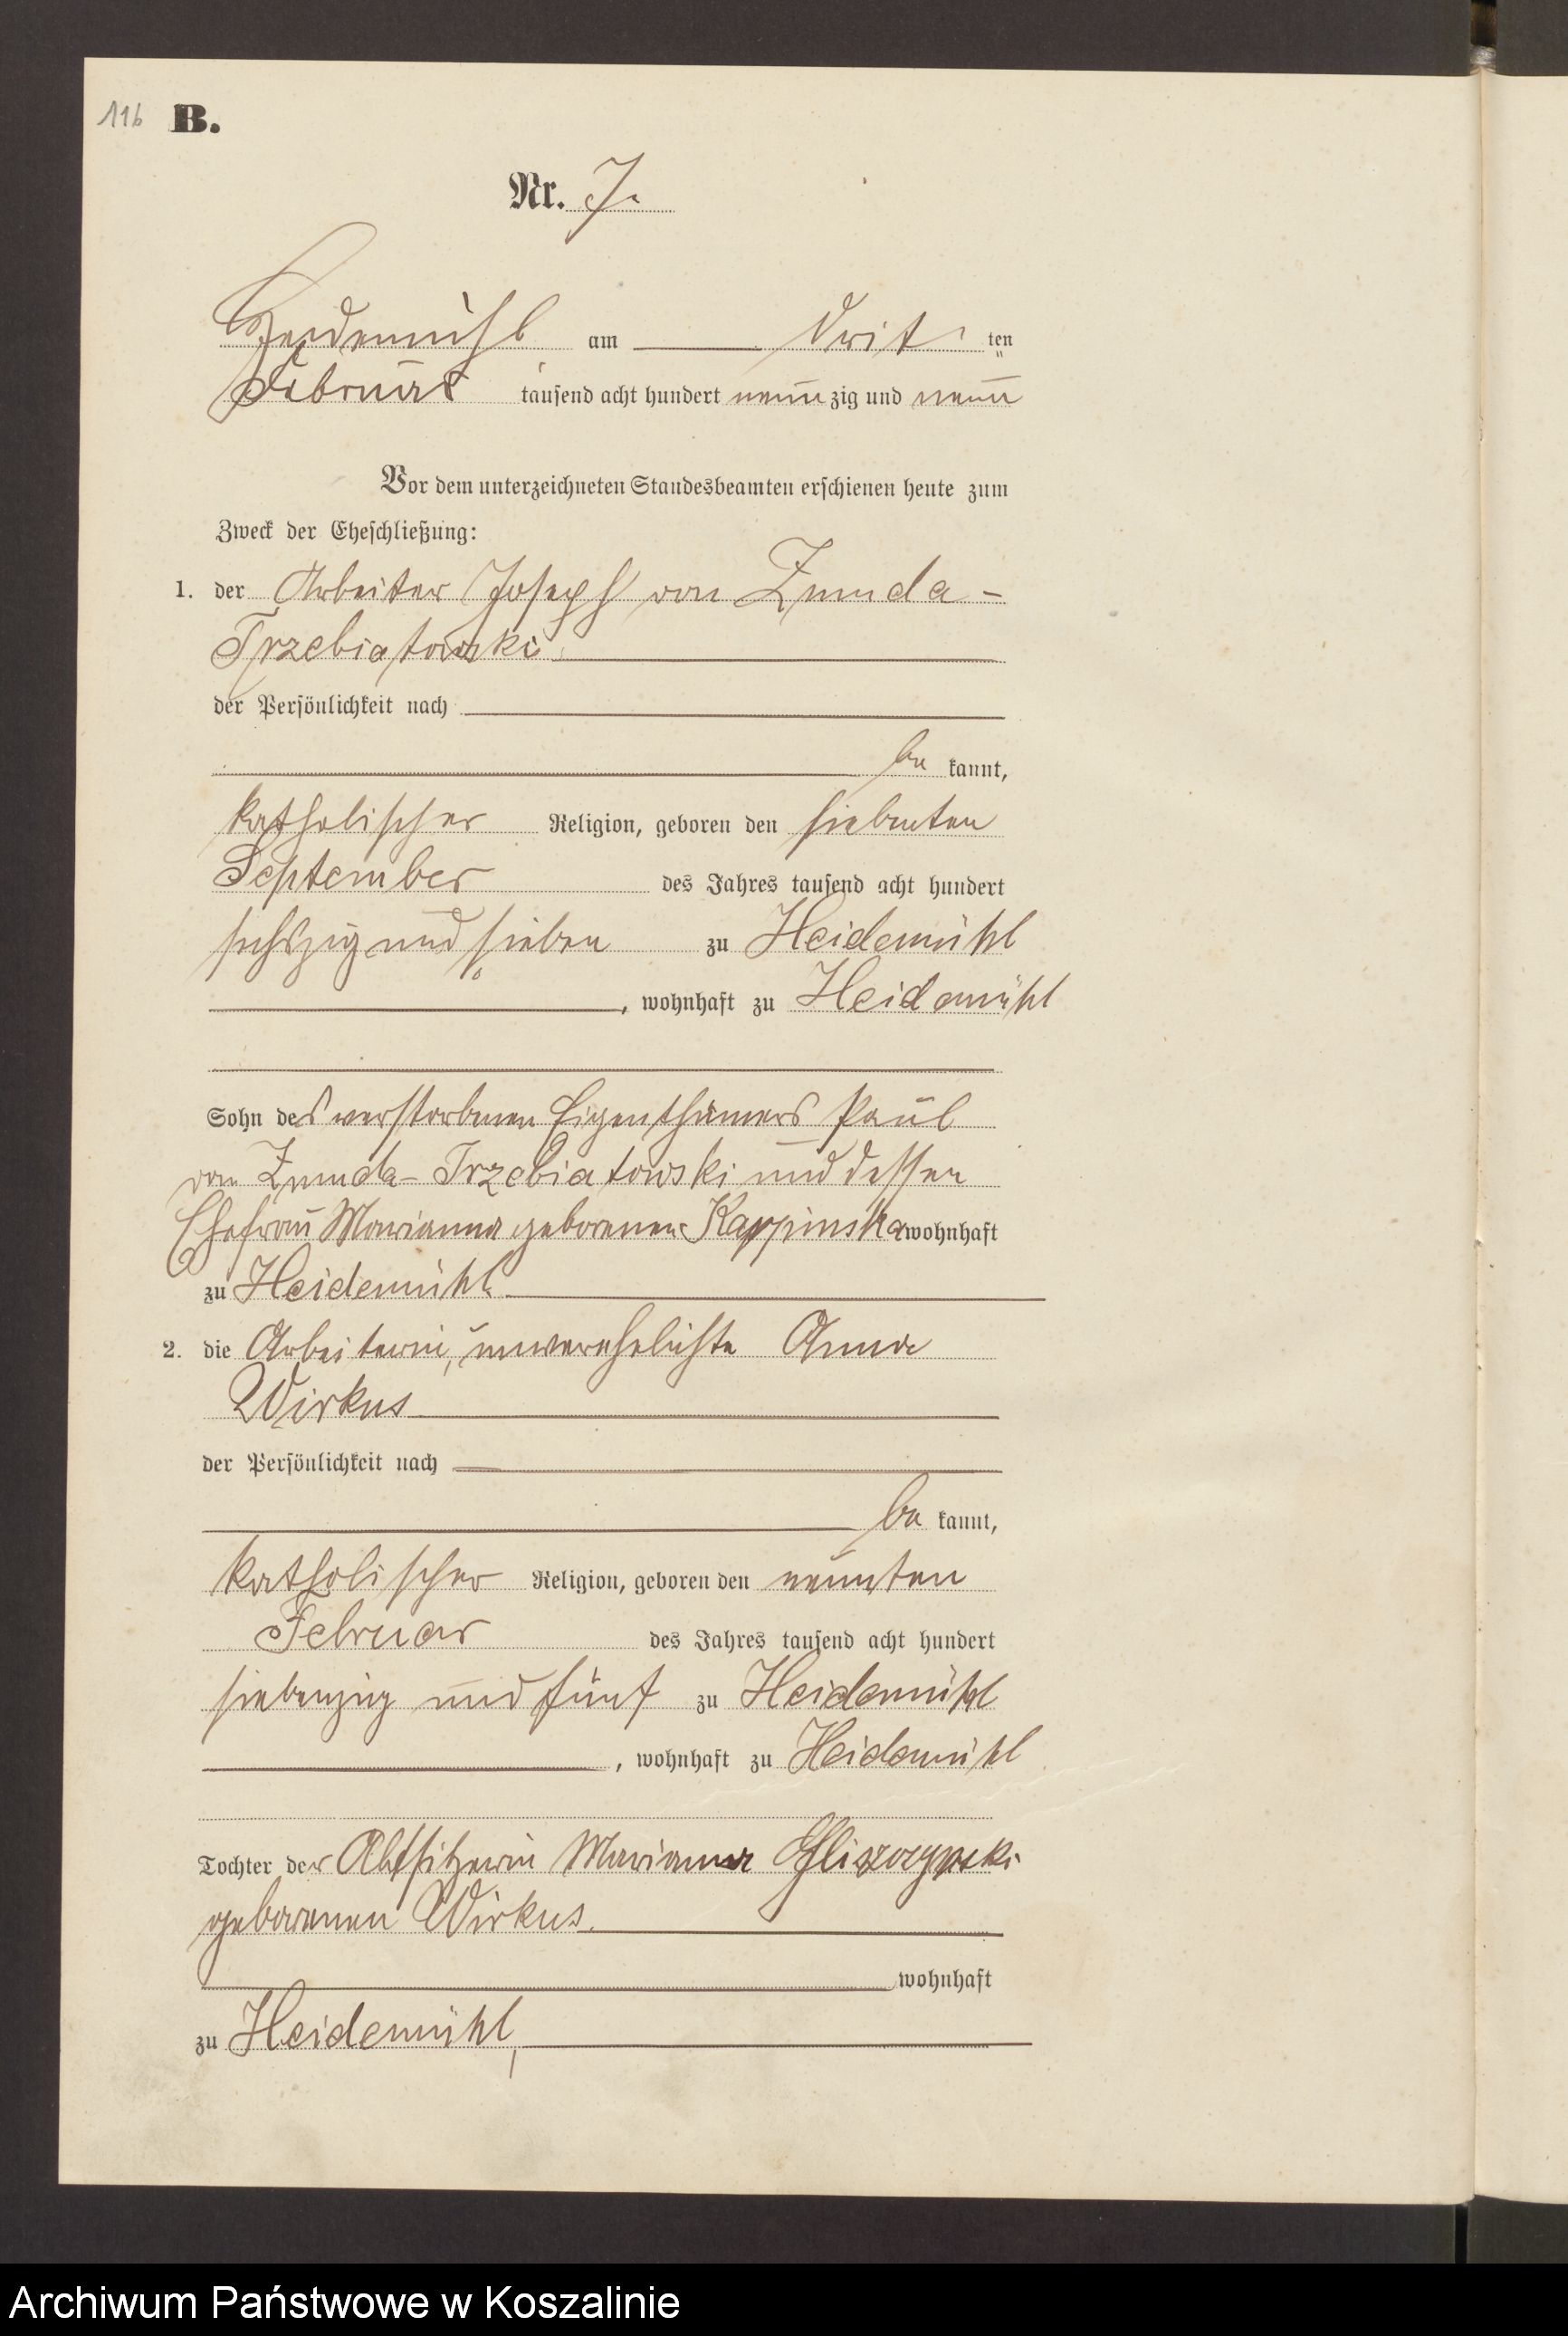 116 B.
Nr. 7.
Heidemühl am Drit ten
Februar tausend acht hundert neun zig und neun
Vor dem unterzeichneten Standesbeamten erschienen heute zum
Zweck der Eheschließung:
1. der Arbeiter Joseph von Zmuda-
Trzebiatowski
der Persönlichkeit nach
be kannt,
katholischer Religion, geboren den siebenten
September des Jahres tausend acht hundert
sechszig und sieben zu Heidemühl
, wohnhaft zu Heidemühl
Sohn des verstorbenen Eigenthümers Paul
von Zmuda-Trzebiatowski und dessen
Ehefrau Marianna geborenen Kappinska wohnhaft
zu Heidemühl
2. die Arbeiterin, unverehelichte Anna
Wirkus
der Persönlichkeit nach
be kannt,
katholischer Religion, geboren den neunten
Februar des Jahres tausend acht hundert
siebenzig und fünf zu Heidemühl
, wohnhaft zu Heidemühl
Tochter der Altsitzerin Marianna
geborenen Wirkus.
wohnhaft
zu Heidemühl,
Archiwum Państwowe w Koszalinie